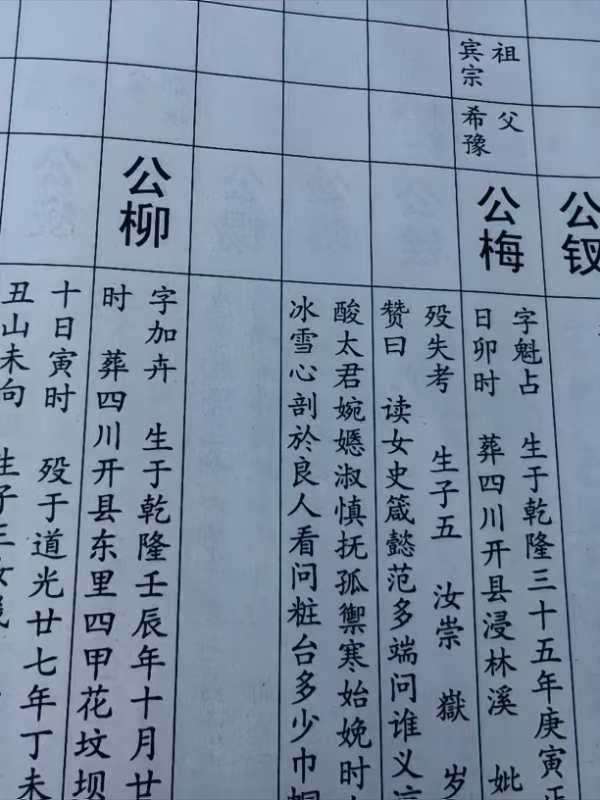 祖
宾宗
父
希豫
公钗
公梅
字魁占 生于乾隆三十五年庚寅正
日卯时 葬四川开县浸林溪 妣
殁失考 生子五 汝崇 嶽 岁
赞曰 读女史箴懿范多端问谁义
酸太君婉嫕淑慎抚孤禦寒始娩时
冰雪心剖於良人看问粧台多少巾
公柳
字加卉 生于乾隆壬辰年十月廿
时 葬四川开县东里四甲花坟坝
十日寅时 殁于道光廿七年丁未
丑山未向 生子三